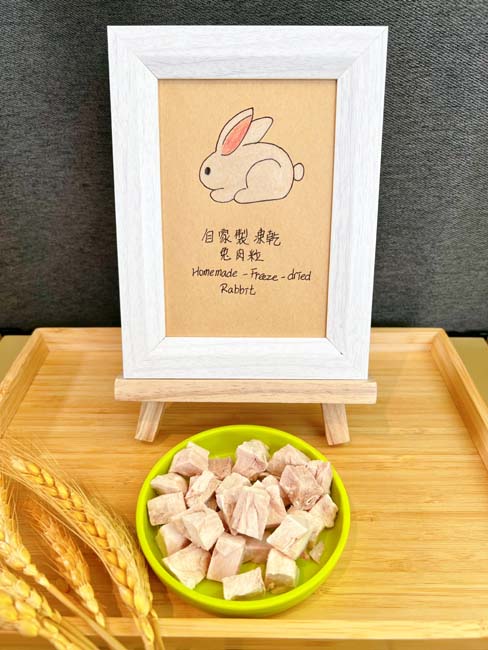 自家製凍乾
兔肉粒
Homemade - Freeze - dried
Rabbit